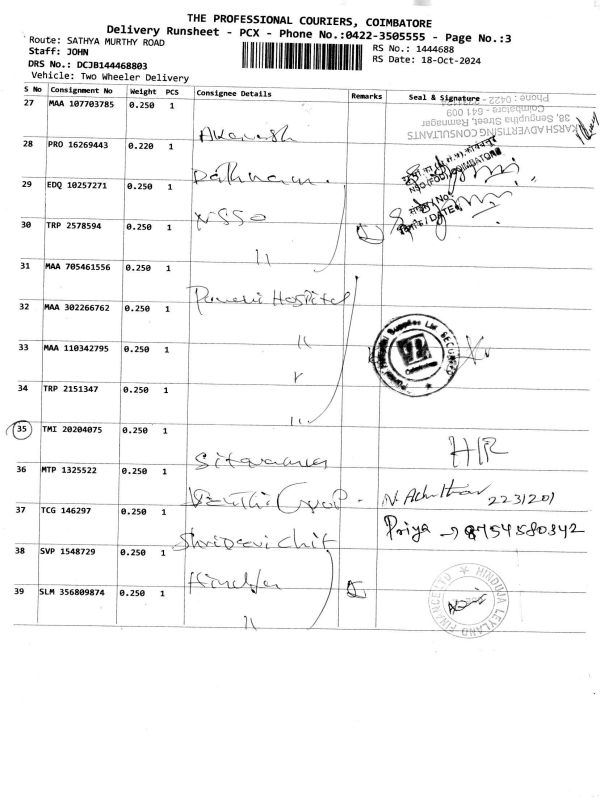 THE PROFESSIONAL COURIERS, COIMBATORE
Delivery Runsheet - PCX - Phone No.:0422-3505555 - Page No.:3
Route: SATHYA MURTHY ROAD
RS No.: 1444688
Staff: JOHN
RS Date: 18-Oct-2024
DRS No.: DCJB144468803
Vehicle: Two Wheeler Delivery
S No Consignment No Weight PCS Consignee Details Remarks Seal & Signature
Phone : 0422 -
Coimbatore - 641 009
38, Sengupta Street, Ramnagar
KARSH ADVERTISING CONSULTANTS
27 MAA 107703785 0.250 1
28 PRO 16269443 0.220 1
29 EDQ 10257271 0.250 1
NSSO
/ No
/ DATE
30 TRP 2578594 0.250 1
"
31 MAA 705461556 0.250 1
Hospital
32 MAA 302266762 0.250 1
"
33 MAA 110342795 0.250 1
"
34 TRP 2151347 0.250 1
"
35 TMI 20204075 0.250 1
HR
36 MTP 1325522 0.250 1
223201
37 TCG 146297 0.250 1
Shridevi Chit
Priya → 8754580342
38 SVP 1548729 0.250 1
39 SLM 356809874 0.250 1
"
HINDUJA LEYLAND FINANCE LTD